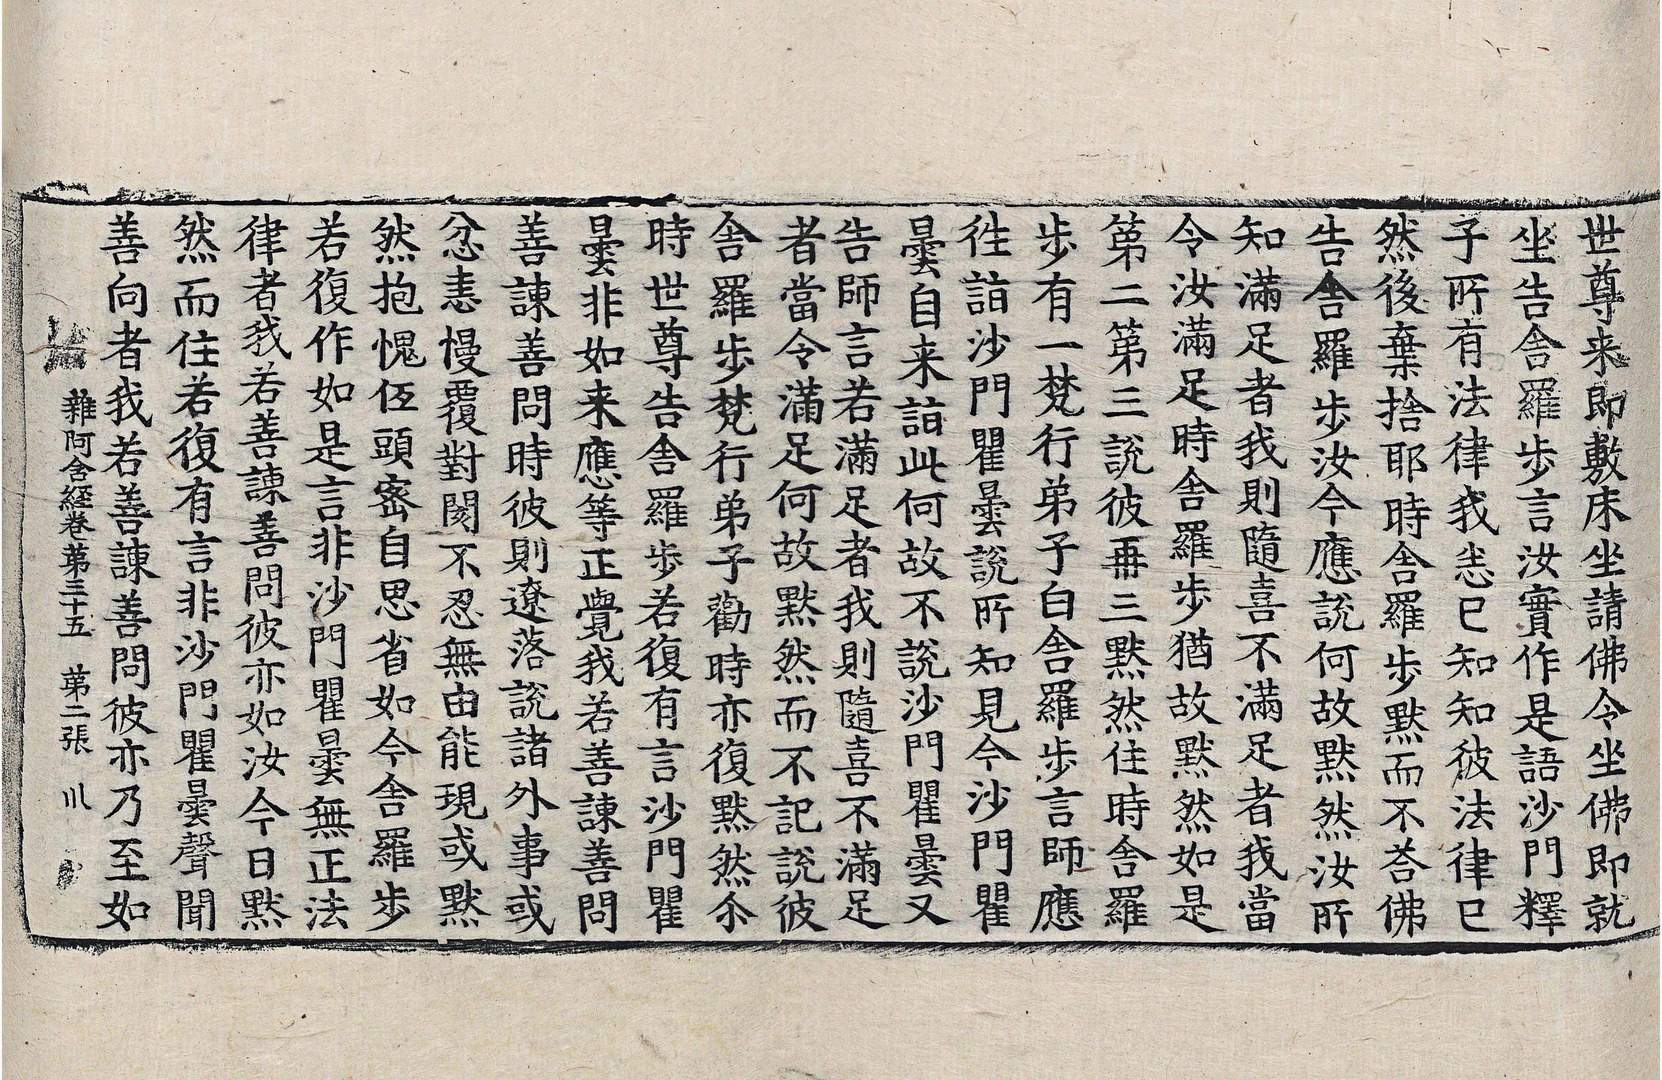 世尊来即敷床坐請佛令坐佛即就
坐告舍羅步言汝實作是語沙門釋
子所有法律我悉已知知彼法律已
然後棄捨耶時舍羅步默而不荅佛
告舍羅步汝今應說何故默然汝所
知滿足者我則隨喜不滿足者我當
令汝滿足時舍羅步猶故默然如是
第二第三說彼再三默然住時舍羅
步有一梵行弟子白舍羅步言師應
往詣沙門瞿曇說所知見今沙門瞿
曇自来詣此何故不說沙門瞿曇又
告師言若滿足者我則隨喜不滿足
者當令滿足何故默然而不記說彼
舍羅步梵行弟子勸時亦復默然尒
時世尊告舍羅步若復有言沙門瞿
曇非如来應等正覺我若善諫善問
善諫善問時彼則遼落說諸外事或
忿恚慢覆對閡不忍無由能現或默
然抱愧伍頭密自思省如今舍羅步
若復作如是言非沙門瞿曇無正法
律者我若善諫善問彼亦如汝今日默
然而住若復有言非沙門瞿曇聲聞
善向者我若善諫善問彼亦乃至如
雜阿含經卷第三十五 第二張 川